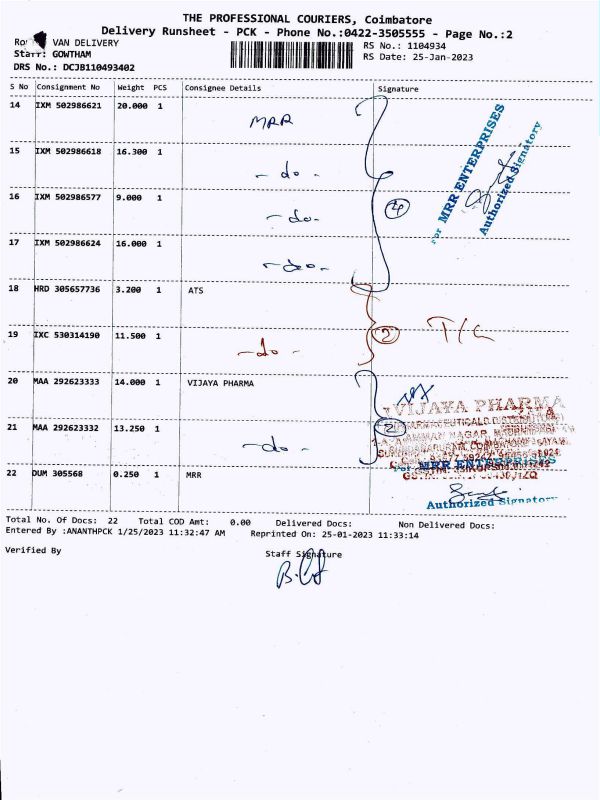 THE PROFESSIONAL COURIERS, Coimbatore
Delivery Runsheet - PCK - Phone No.:0422-3505555 - Page No.:2
VAN DELIVERY
RS No.: 1104934
Staff: GOWTHAM
RS Date: 25-Jan-2023
DRS No.: DCJB110493402
S No Consignment No Weight PCS Consignee Details Signature
14 IXM 502986621 20.000 1 MRR
15 IXM 502986618 16.300 1
- do -
16 IXM 502986577 9.000 1
- do -
17 IXM 502986624 16.000 1
- do -
4
For MRR ENTERPRISES
Authorized Signatory
18 HRD 305657736 3.200 1 ATS
19 IXC 530314190 11.500 1
- do -
2
20 MAA 292623333 14.000 1 VIJAYA PHARMA
21 MAA 292623332 13.250 1
- do -
2
VIJAYA PHARMA
22 DUM 305568 0.250 1 MRR
For MRR ENTERPRISES
Authorized Signatory
Total No. Of Docs: 22 Total COD Amt: 0.00 Delivered Docs: Non Delivered Docs:
Entered By :ANANTHPCK 1/25/2023 11:32:47 AM Reprinted On: 25-01-2023 11:33:14
Verified By Staff Signature